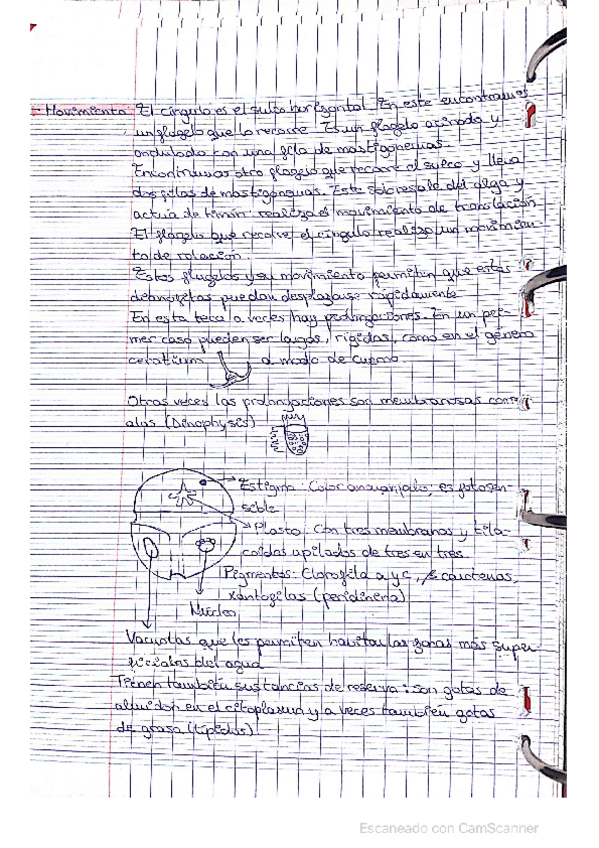 - Movimiento: El cíngulo es el surco horizontal. En este encontramos
un flagelo que lo recorre. Es un flagelo acintado y
ondulado con una fila de mastigonemas.
Encontramos otro flagelo que recorre al sulco y lleva
dos filas de mastigonemas. Este sobresale del alga y
actúa de timón: realiza el movimiento de translación
El flagelo que recorre el cíngulo realiza un movimien-
to de rotación.
Estos flagelos y su movimiento permiten que estas
dinofitas puedan desplazarse rápidamente.
En esta teca a veces hay prolongaciones. En un pri-
mer caso pueden ser largas, rígidas, como en el género
ceratium a modo de cuerno
Otras veces las prolongaciones son membranosas como
alas (Dinophysis)
Estigma: Color anaranjado; es fotosen-
sible
Plasto: Con tres membranas y tila-
coides apilados de tres en tres.
Pigmentos: Clorofila a y c, β carotenos,
xantofilas (peridinina)
Núcleo
Vacuolas que les permiten habitar las zonas más super-
ficiales del agua
Tienen también sustancias de reserva: son gotas de
almidón en el citoplasma y a veces también gotas
de grasa (lípidos)
Escaneado con CamScanner